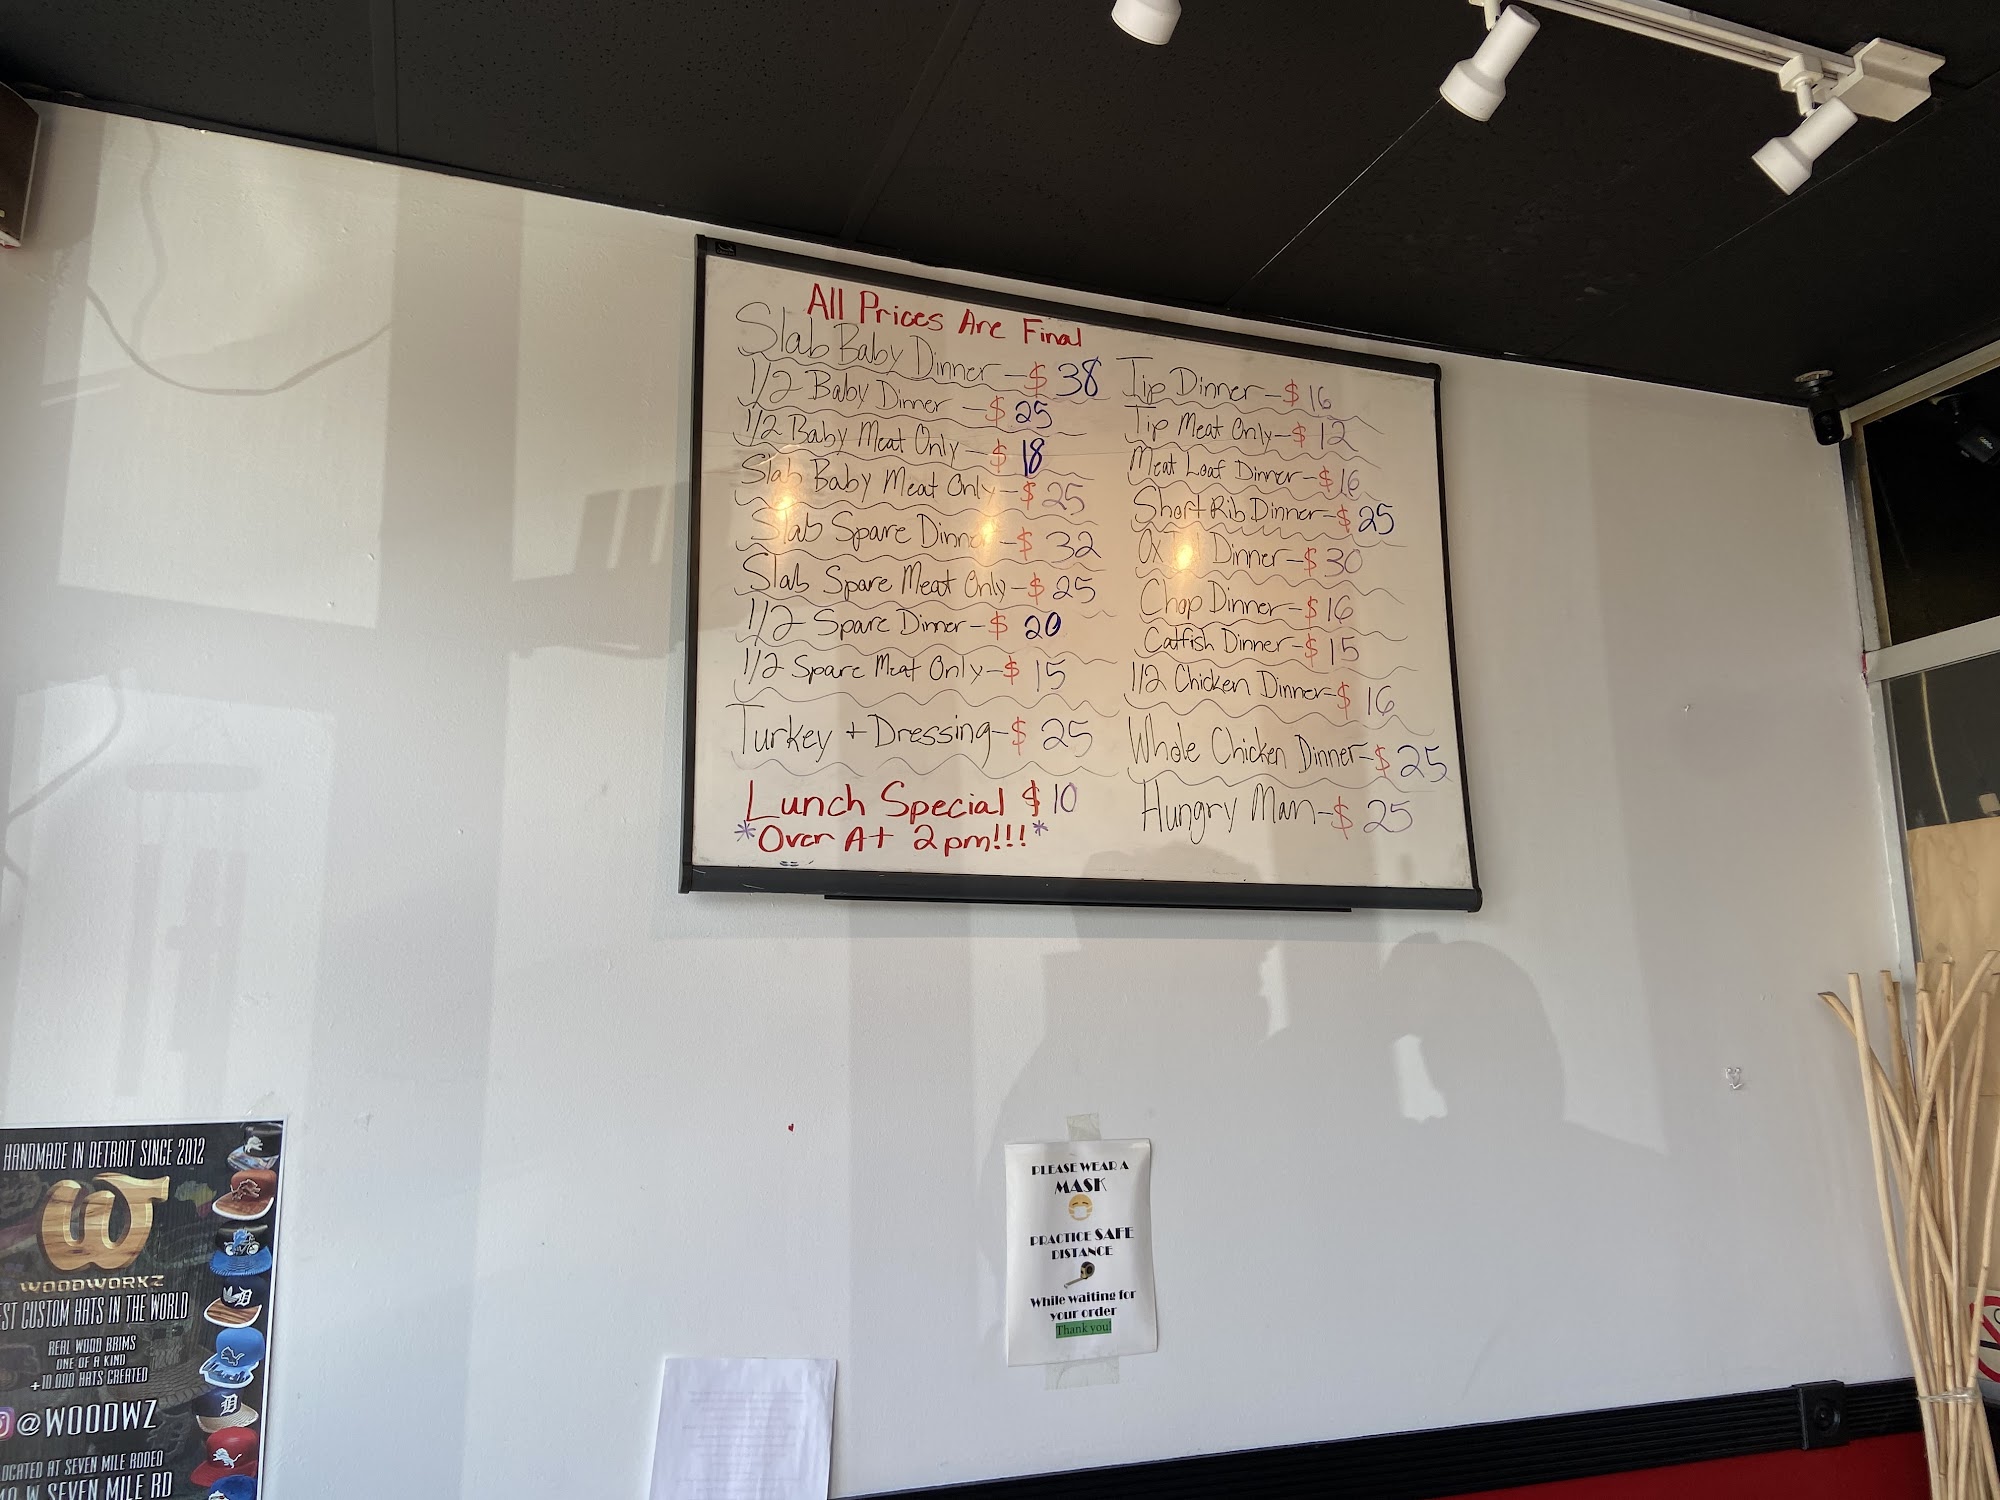 All Prices Are Final
Slab Baby Dinner - $ 38
1/2 Baby Dinner - $ 25
1/2 Baby Meat Only - $ 18
Slab Baby Meat Only - $ 25
Slab Spare Dinner - $ 32
Slab Spare Meat Only - $ 25
1/2 Spare Dinner - $ 20
1/2 Spare Meat Only - $ 15
Turkey + Dressing - $ 25
Lunch Special $ 10
*Over At 2pm!!!*
Tip Dinner - $ 16
Tip Meat Only - $ 12
Meat Loaf Dinner - $ 16
Short Rib Dinner - $ 25
Ox Dinner - $ 30
Chop Dinner - $ 16
Catfish Dinner - $ 15
1/2 Chicken Dinner - $ 16
Whole Chicken Dinner - $ 25
Hungry Man - $ 25
HANDMADE IN DETROIT SINCE 2012
WOODWORKZ
CUSTOM HATS IN THE WORLD
REAL WOOD BRIMS
ONE OF A KIND
+10,000 HATS CREATED
@WOODWZ
AT SEVEN MILE RODEO
W SEVEN MILE RD
PLEASE WEAR A
MASK
PRACTICE SAFE
DISTANCE
While waiting for
your order
Thank you!